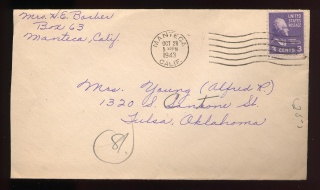 Mrs. H.E. Barber
Box 63
Manteca, Calif.
MANTECA
OCT 28
5 PM
1943
CALIF.
UNITED STATES
POSTAGE
3 CENTS 3
Mrs. Young (Alfred P.)
1320 S. St.
Tulsa, Oklahoma
81